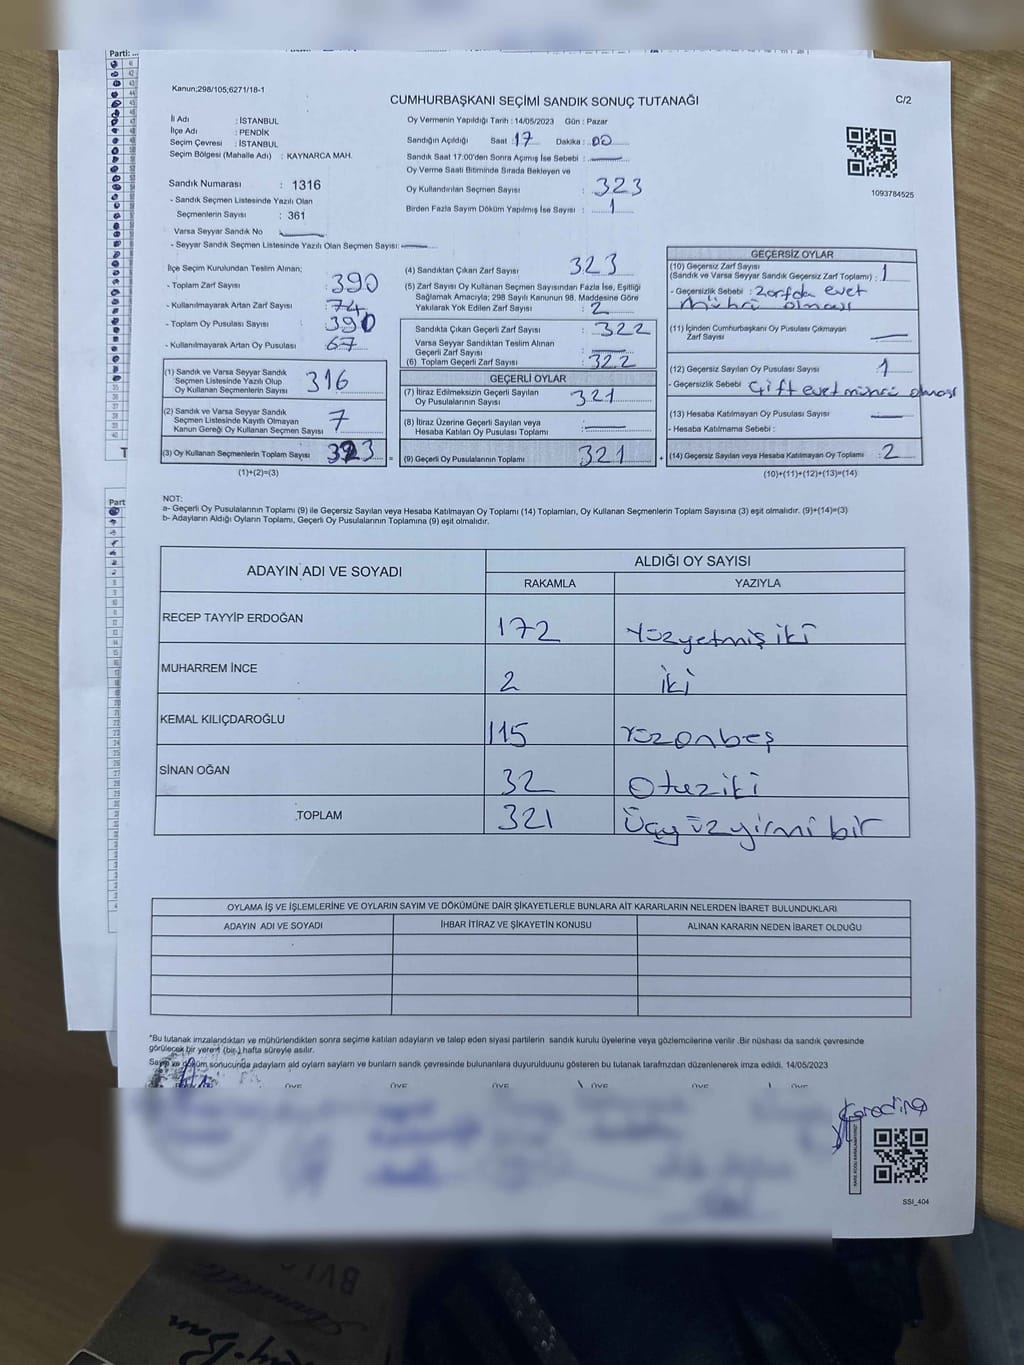 Parti: ...
Kanun;298/105;6271/18-1
CUMHURBAŞKANI SEÇİMİ SANDIK SONUÇ TUTANAĞI
C/2
İl Adı : İSTANBUL
İlçe Adı : PENDİK
Seçim Çevresi : İSTANBUL
Seçim Bölgesi (Mahalle Adı) : KAYNARCA MAH.
Sandık Numarası : 1316
- Sandık Seçmen Listesinde Yazılı Olan
Seçmenlerin Sayısı : 361
Varsa Seyyar Sandık No
- Seyyar Sandık Seçmen Listesinde Yazılı Olan Seçmen Sayısı:
Oy Vermenin Yapıldığı Tarih : 14/05/2023 Gün : Pazar
Sandığın Açıldığı Saat : 17 Dakika : 00
Sandık Saat 17:00'den Sonra Açılmış İse Sebebi :
Oy Verme Saati Bitiminde Sırada Bekleyen ve
Oy Kullandırılan Seçmen Sayısı : 323
Birden Fazla Sayım Döküm Yapılmış İse Sayısı : 1
1093784525
İlçe Seçim Kurulundan Teslim Alınan;
- Toplam Zarf Sayısı : 390
- Kullanılmayarak Artan Zarf Sayısı : 74
- Toplam Oy Pusulası Sayısı : 390
- Kullanılmayarak Artan Oy Pusulası : 67
(1) Sandık ve Varsa Seyyar Sandık
Seçmen Listesinde Yazılı Olup
Oy Kullanan Seçmenlerin Sayısı : 316
(2) Sandık ve Varsa Seyyar Sandık
Seçmen Listesinde Kayıtlı Olmayan
Kanun Gereği Oy Kullanan Seçmen Sayısı : 7
(3) Oy Kullanan Seçmenlerin Toplam Sayısı : 323
(1)+(2)=(3)
(4) Sandıktan Çıkan Zarf Sayısı : 323
(5) Zarf Sayısı Oy Kullanan Seçmen Sayısından Fazla İse, Eşitliği
Sağlamak Amacıyla; 298 Sayılı Kanunun 98. Maddesine Göre
Yakılarak Yok Edilen Zarf Sayısı : 2
Sandıkta Çıkan Geçerli Zarf Sayısı : 322
Varsa Seyyar Sandıktan Teslim Alınan
Geçerli Zarf Sayısı :
(6) Toplam Geçerli Zarf Sayısı : 322
GEÇERLİ OYLAR
(7) İtiraz Edilmeksizin Geçerli Sayılan
Oy Pusulalarının Sayısı : 321
(8) İtiraz Üzerine Geçerli Sayılan veya
Hesaba Katılan Oy Pusulası Toplamı :
(9) Geçerli Oy Pusulalarının Toplamı : 321
GEÇERSİZ OYLAR
(10) Geçersiz Zarf Sayısı
(Sandık ve Varsa Seyyar Sandık Geçersiz Zarf Toplamı) : 1
- Geçersizlik Sebebi : Zarfda evet
Mührü olması
(11) İçinden Cumhurbaşkanı Oy Pusulası Çıkmayan
Zarf Sayısı
(12) Geçersiz Sayılan Oy Pusulası Sayısı : 1
- Geçersizlik Sebebi : Çift evet mührü olması
(13) Hesaba Katılmayan Oy Pusulası Sayısı
- Hesaba Katılmama Sebebi :
(14) Geçersiz Sayılan veya Hesaba Katılmayan Oy Toplamı : 2
(10)+(11)+(12)+(13)=(14)
NOT:
a- Geçerli Oy Pusulalarının Toplamı (9) ile Geçersiz Sayılan veya Hesaba Katılmayan Oy Toplamı (14) Toplamları, Oy Kullanan Seçmenlerin Toplam Sayısına (3) eşit olmalıdır. (9)+(14)=(3)
b- Adayların Aldığı Oyların Toplamı, Geçerli Oy Pusulalarının Toplamına (9) eşit olmalıdır.
ADAYIN ADI VE SOYADI
ALDIĞI OY SAYISI
RAKAMLA YAZIYLA
RECEP TAYYİP ERDOĞAN 172 Yüzyetmiş iki
MUHARREM İNCE 2 iki
KEMAL KILIÇDAROĞLU 115 Yüzonbeş
SİNAN OĞAN 32 Otuziki
TOPLAM 321 Üçyüzyirmi bir
OYLAMA İŞ VE İŞLEMLERİNE VE OYLARIN SAYIM VE DÖKÜMÜNE DAİR ŞİKAYETLERLE BUNLARA AİT KARARLARIN NELERDEN İBARET BULUNDUKLARI
ADAYIN ADI VE SOYADI İHBAR İTİRAZ VE ŞİKAYETİN KONUSU ALINAN KARARIN NEDEN İBARET OLDUĞU
*Bu tutanak imzalandıktan ve mühürlendikten sonra seçime katılan adayların ve talep eden siyasi partilerin sandık kurulu üyelerine veya gözlemcilerine verilir .Bir nüshası da sandık çevresinde
görülecek bir yere 1 (bir) hafta süreyle asılır.
Sayım ve döküm sonucunda adayların aldığı oyların sayılarını ve bunların sandık çevresinde bulunanlara duyurulduğunu gösteren bu tutanak tarafımızdan düzenlenerek imza edildi. 14/05/2023
ÜYE ÜYE ÜYE ÜYE ÜYE ÜYE
SSI_404